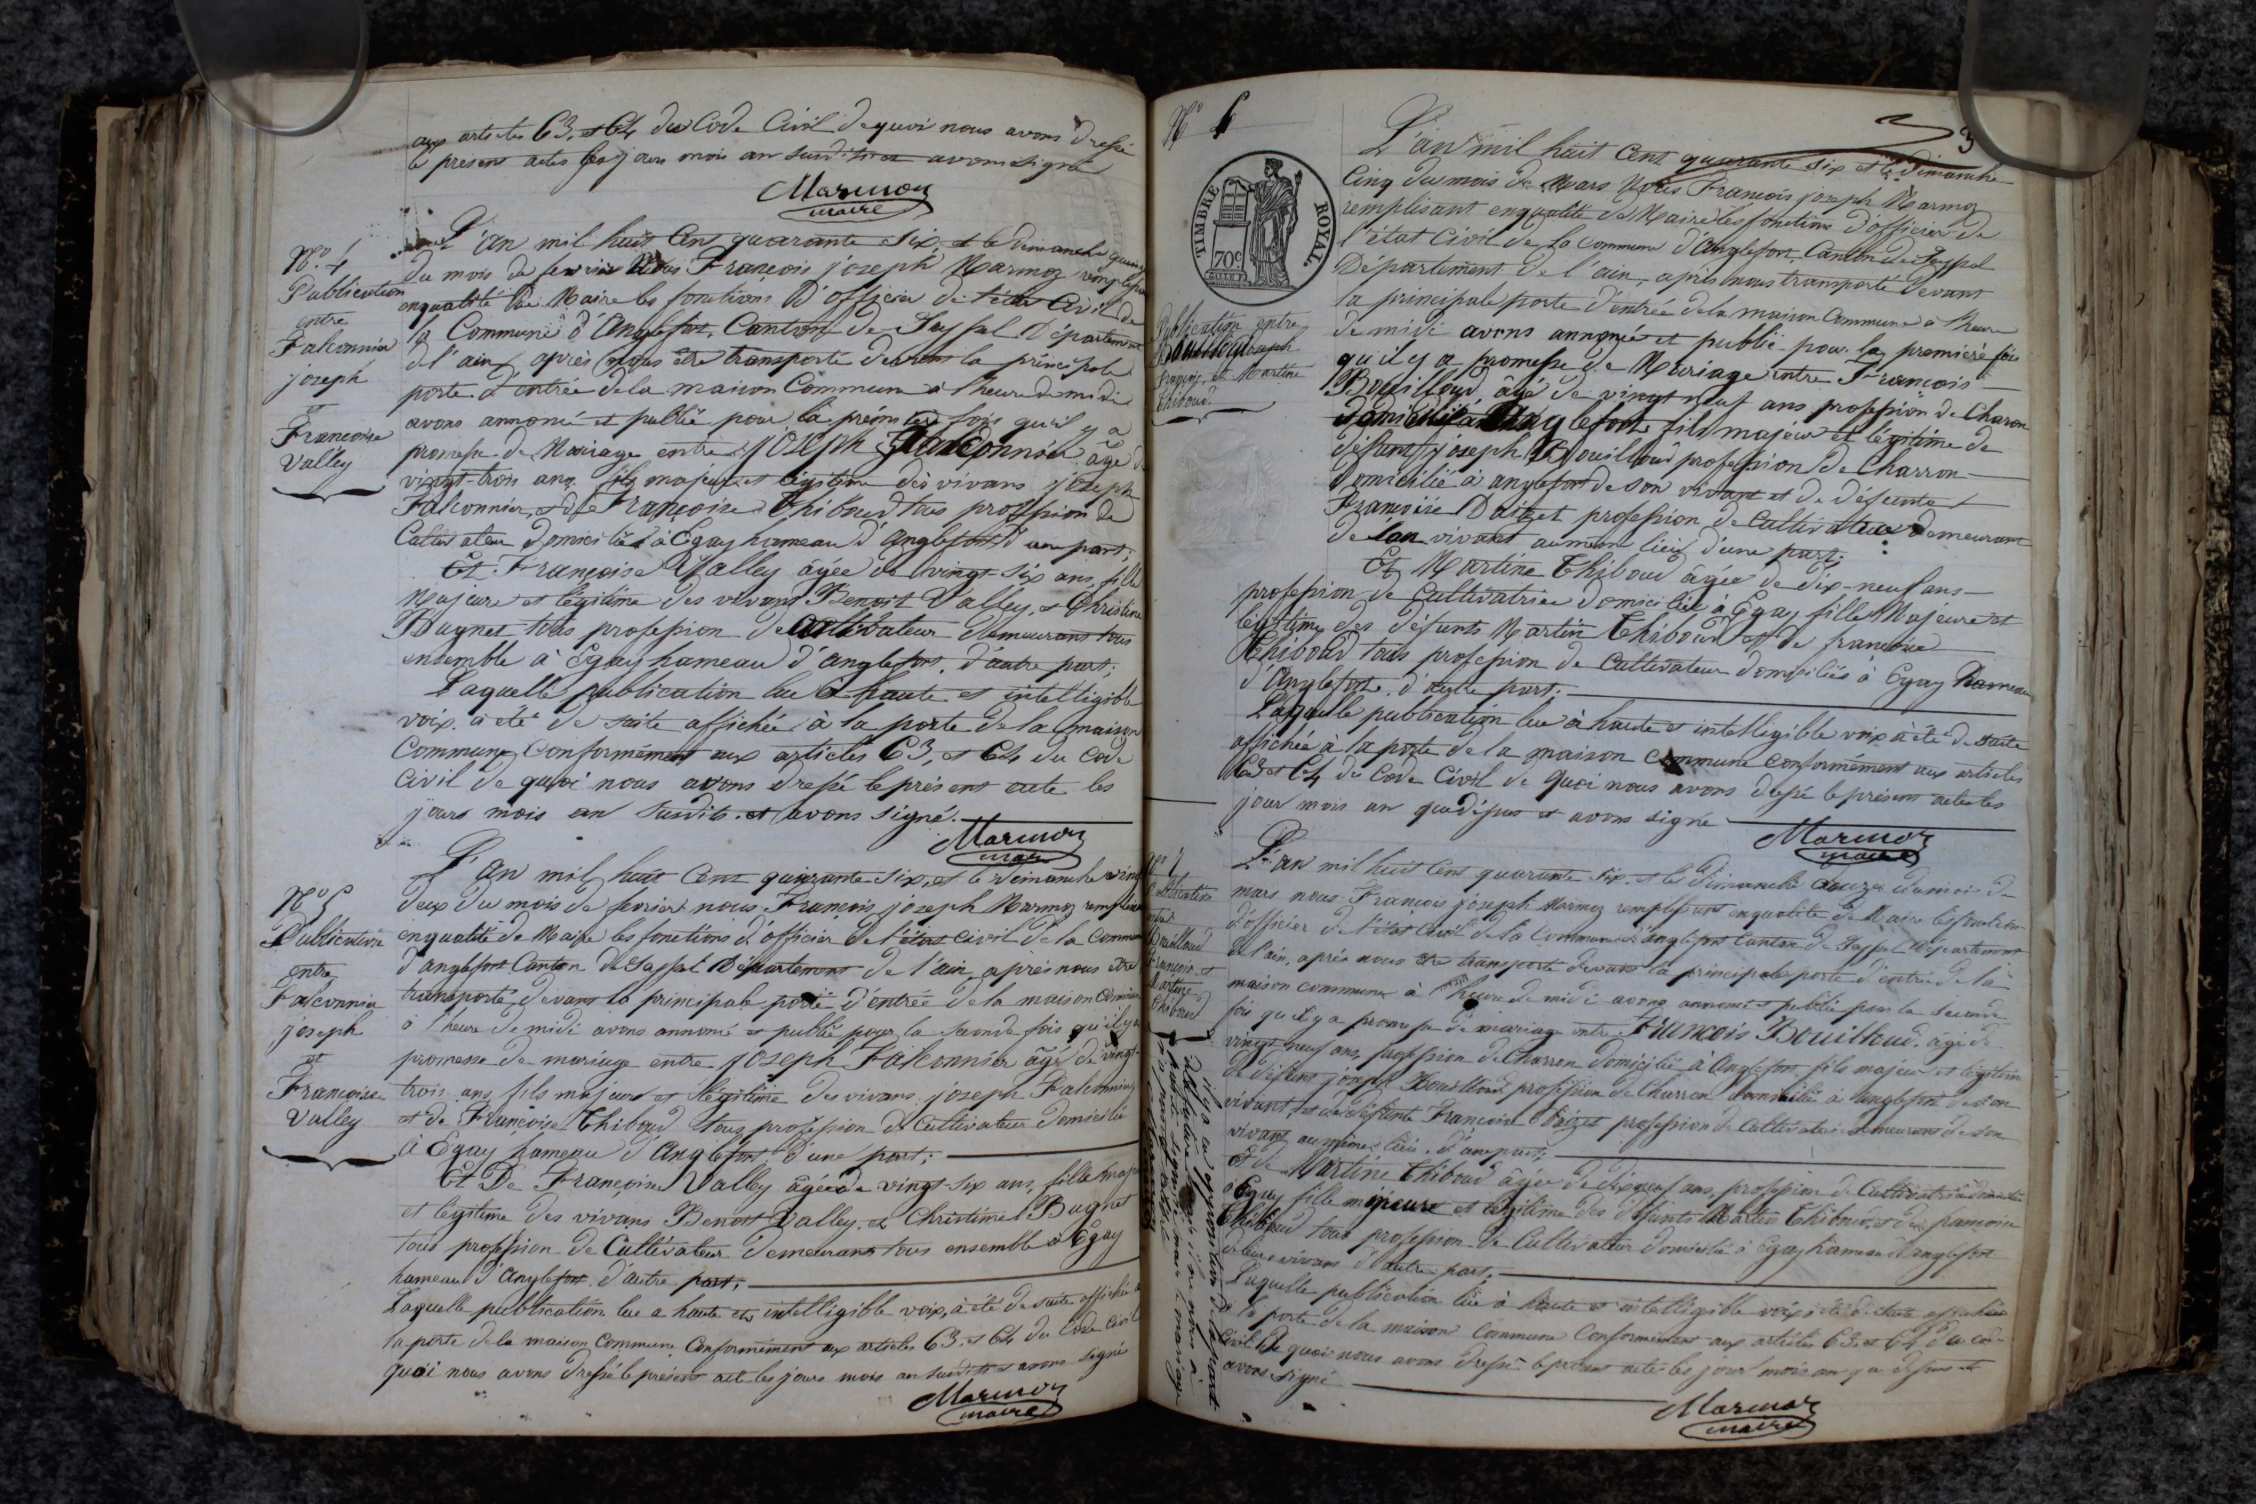 aux articles 63, et 64 du Code Civil de quoi nous avons dressé
le present actes les jours mois an susdits et avons signé
Marmoz
maire
N.º 4
Publication
entre
Falconnier
joseph
et
Francoise
Valley
L'an mil huit Cent quarante six, et le Dimanche quinze
du mois de fevrier Nous François joseph Marmoz remplissant
enqualité de Maire les fonctions d'officier de l'état Civil de
la Commune d'Anglefort, Canton de Seyssel Département
de l'ain, après nous être transporté devant la principale
porte d'entrée de la maison Commune à l'heure de midi
avons annoncé et publié pour la première fois qu'il y a
promesse de Mariage entre joseph Falconnier âgé de
vingt-trois ans fils majeur et légitime des vivans joseph
Falconnier, et de Françoise Thiboud tous profession de
Cultivateur domiciliés à Egay hameau d'Anglefort d'une part;
Et Françoise Valley âgée de vingt six ans, fille
Majeure et légitime des vivans Benoit Valley, et Christine
Bugnet tous profession de Cultivateur demeurans tous
ensemble à Egay hameau d'anglefort, d'autre part;
Laquelle publication lue à haute et intelligible
voix, a été de suite affichée à la porte de la maison
Commune, Conformément aux articles 63, et 64 du code
Civil de quoi nous avons dressé le présent acte les
jours mois an susdits et avons signé.
Marmoz
maire
Nº 5
Publication
entre
Falconnier
joseph
et
Françoise
Valley
L'an mil huit Cent quarante-six, et le Dimanche vingt
deux du mois de fevrier nous François joseph Marmoz remplissant
enqualité de Maire les fonctions d'officier de l'état civil de la Commune
d'anglefort Canton de Seyssel Département de l'ain, après nous être
transporté devant la principale porte d'entrée de la maison commune
à l'heure de midi avons annoncé et publié pour la seconde fois qu'il y a
promesse de mariage entre joseph Falconnier âgé de vingt-
trois ans, fils majeur et légitime des vivans joseph Falconnier
et de Françoise Thiboud tous profession de Cultivateur domiciliés
à Egay hameau d'Anglefort d'une part;
Et De Françoise Valley âgée de vingt-six ans, fille maj
et légitime des vivans Benoit Valley, et Christine Bugnet
tous profession de Cultivateur demeurans tous ensemble à Egay
hameau d'Anglefort d'autre part;
Laquelle publication lue a haute et intelligible voix, a été de suite affichée à
la porte de la maison Commune Conformément aux articles 63 et 64 du Code Civil
quoi nous avons dressé le présent acte les jours mois an susdits et avons signé
Marmoz
maire
Nº 6
3
TIMBRE ROYAL.
70c
Publication entre
Bouilloud joseph
françois, et Martine
Thiboud
L'an mil huit Cent quarante six et le Dimanche
Cinq du mois de Mars Nous François joseph Marmoz
remplissant enqualité de Maire les fonctions d'officier de
l'état Civil de la commune d'Anglefort, Canton de Seyssel
Département de l'ain, après nous transporté devant
la principale porte d'entrée de la maison Commune à l'heure
de midi avons annoncé et publié pour la première fois
qu'il y a promesse de Mariage entre François
Bouilloud âgé de vingt neuf ans profession de Charon
Domicilié à Anglefort fils majeur et légitime de
défunt joseph Bouilloud profession de Charron
Domicilié à anglefort de son vivant et de défunte
Françoise Daizet profession de Cultivateur demeurant
de son vivant au même lieu d'une part;
Et Martine Thiboud âgée de dix-neuf ans
profession de Cultivatrice domiciliée à Egay fille Majeure et
légitime des défunts Martin Thiboud et de françoise
Thiboud tous profession de Cultivateur domiciliés à Egay hameau
d'Anglefort, d'autre part;
Laquelle publication lue à haute et intelligible voix a été de suite
affichée à la porte de la maison commune conformément aux articles
63 et 64 du Code Civil de quoi nous avons dressé le présent acte les
jour mois an que dessus et avons signé
Marmoz
maire
Nº 7
Publication
entre
Bouilloud
François et
Martine
Thiboud
L'an mil huit Cent quarante six, et le dimanche douze du mois de
mars nous François joseph Marmoz remplissant enqualité de Maire les fonctions
d'officier de l'état Civil de la Commune d'anglefort Canton de Seyssel Département
de l'ain, après nous être transporté devant la principale porte d'entrée de la
maison commune à l'heure de midi avons annoncé et publié pour la seconde
fois qu'il y a promesse de mariage entre François Bouilloud âgé de
vingt neuf ans, profession de Charron domicilié à Anglefort fils majeur et légitime
de défunt joseph Bouilloud profession de Charron domicilié à anglefort de son
vivant et de défunte Françoise Daizet profession de Cultivateur demeurant de son
vivant au même lieu d'une part;
Et de Martine Thiboud âgée de dix neuf ans, profession de Cultivatrice domiciliée
à Egay fille majeure et légitime des défunts Martin Thiboud, et de françoise
Thiboud tous profession de Cultivateur domiciliés à Egay hameau d'anglefort
de leur vivans d'autre part;
Laquelle publication lue à haute et intelligible voix a été de suite affichée
à la porte de la maison Commune Conformément aux articles 63 et 64 du code
Civil De quoi nous avons dressé le présent acte les jour mois an que dessus et
avons signé
Marmoz
maire
il y a eu opposition de la part